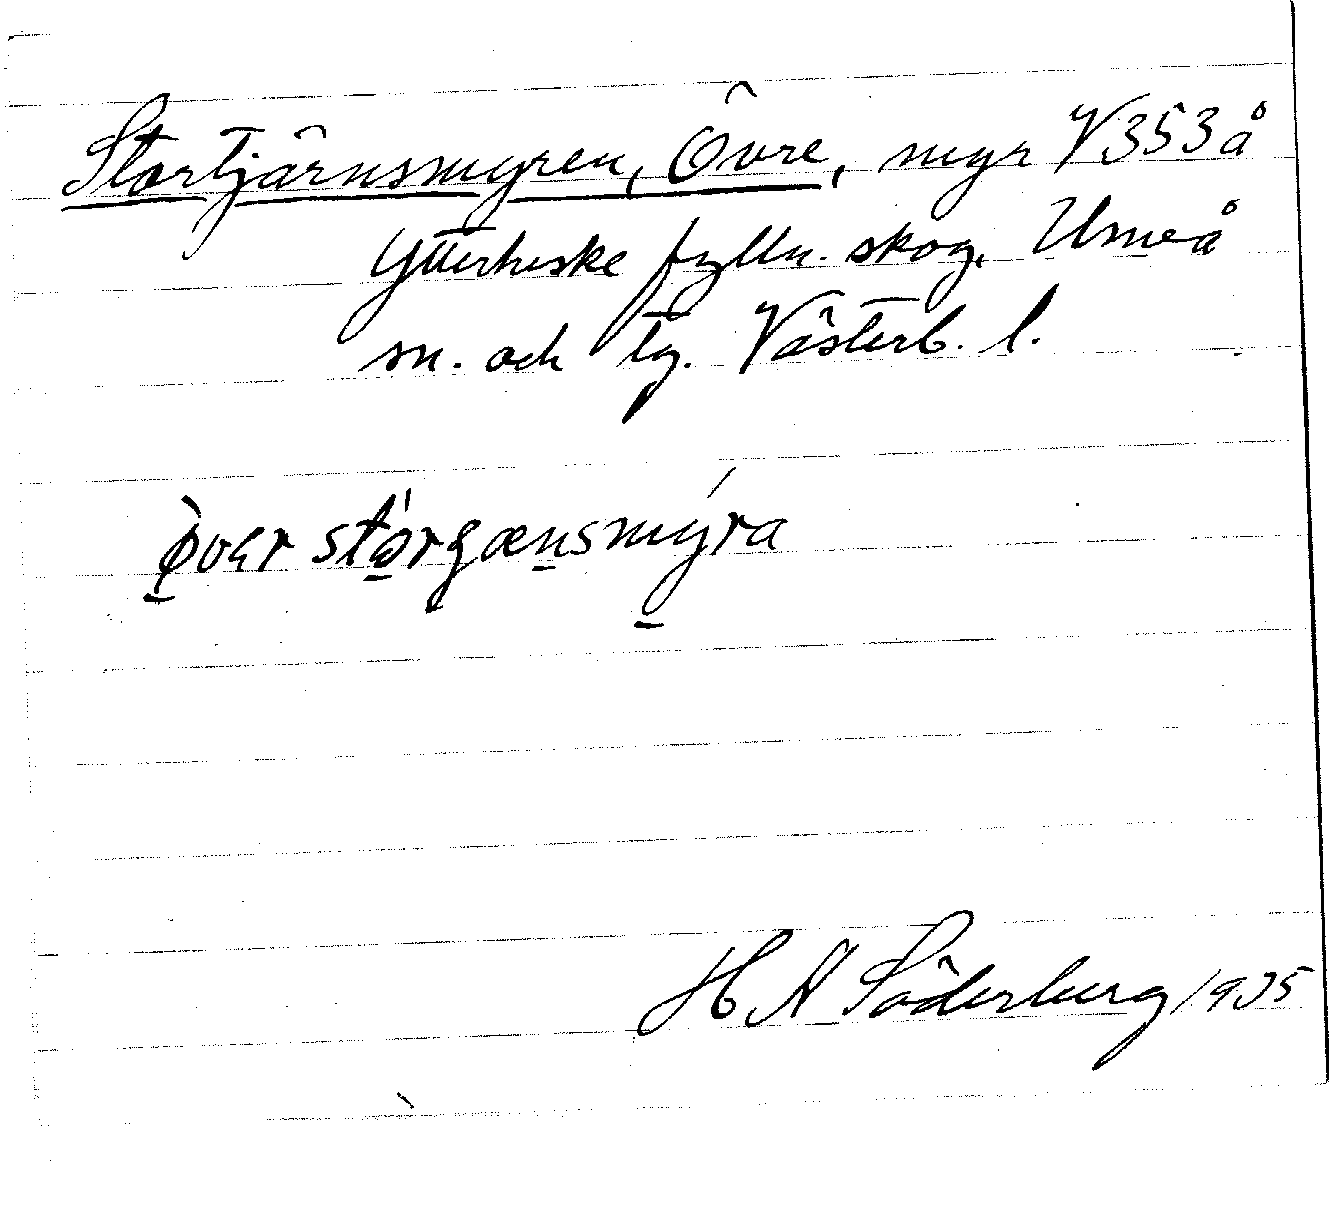 Stortjärnsmyren, Övre, myr V353å
Ytterhiske fylln. skog, Umeå
sn. och tg. Västerb. l.
över størgænsmýra
H A Söderberg 1935